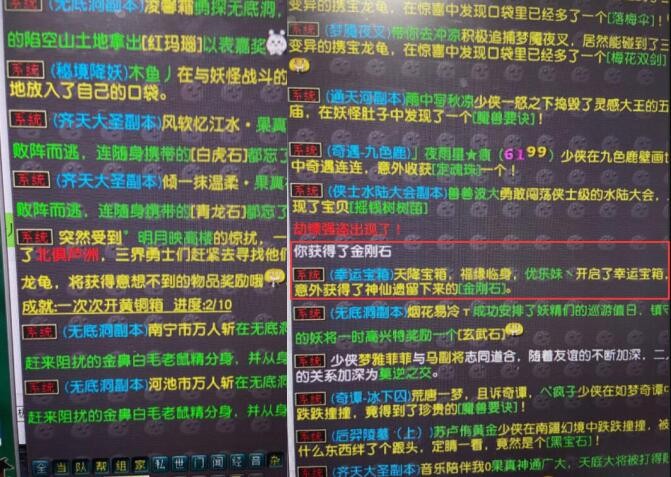 系统 (无底洞副本)凌馨箱勇探无底洞,
的陷空山土地拿出[红玛瑙]以表嘉奖
系统 (秘境降妖)木鱼丿在与妖怪战斗的
地放入了自己的口袋。
系统 (齐天大圣副本)风软忆江水·果真
败阵而逃，连随身携带的[白虎石]都忘了
系统 (齐天大圣副本)倾一抹温柔·果真
败阵而逃，连随身携带的[青龙石]都忘了
系统 突然受到°明月映高楼的惊扰，一
了北俱芦洲，三界勇士们赶紧去寻找他们
龙龟，将获得意想不到的物品奖励哦
成就:一次次开黄铜箱 进度:2/10
系统 (无底洞副本)南宁市万人斩在无底
赶来阻扰的金鼻白毛老鼠精分身，并从身
系统 (无底洞副本)河池市万人斩在无底
赶来阻扰的金鼻白毛老鼠精分身，并从身
全 当 队 帮 组 家 私 世 门 闻 经 音 杂
变异的携宝龙龟，在惊喜中发现口袋里已经多了一个[落梅伞]！
系统 (梦魇夜叉)带你去冲凉积极追捕梦魇夜叉，居然能碰到了三
变异的携宝龙龟，在惊喜中发现口袋里已经多了一个[梅花双剑]
系统 (通天河副本)雨中写秋凉少侠一怒之下捣毁了灵感大王的五
庙，在妖怪肚子中发现了一个[魔兽要诀]！
系统 (奇遇-九色鹿)丿夜雨星★痕(6199)少侠在九色鹿壁画
中奇遇连连，意外收获[定魂珠]一个！
系统 (侠士水陆大会副本)兽兽波大勇敢闯荡侠士级的水陆大会，
现了宝贝[摇钱树树苗]
劫镖强盗出现了！
你获得了金刚石
系统 (幸运宝箱)天降宝箱，福缘临身，优乐妹丶开启了幸运宝箱
意外获得了神仙遗留下来的[金刚石]。
系统 (无底洞副本)烟花易冷┮成功安排了妖精们的巡游值日，镇
的妖将一时高兴特奖励一个[玄武石]
系统 少侠梦雅菲菲与马副将志同道合，随着友谊的不断加深，二
的关系加深为莫逆之交。
系统 (奇谭-冰下囚)荒唐一梦，且诉奇谭，ペ疯子少侠在如梦奇谭
跌跌撞撞，竟得到了珍贵的[魔兽要诀]！
系统 (后羿陵墓·(上))苏卢侑黄金少侠在南疆幻境中跌跌撞撞，被
什么东西绊了个跟头，定睛一看，竟然是个[黑宝石]！
系统 (齐天大圣副本)音乐陪伴我0果真神通广大，天庭大将被打得